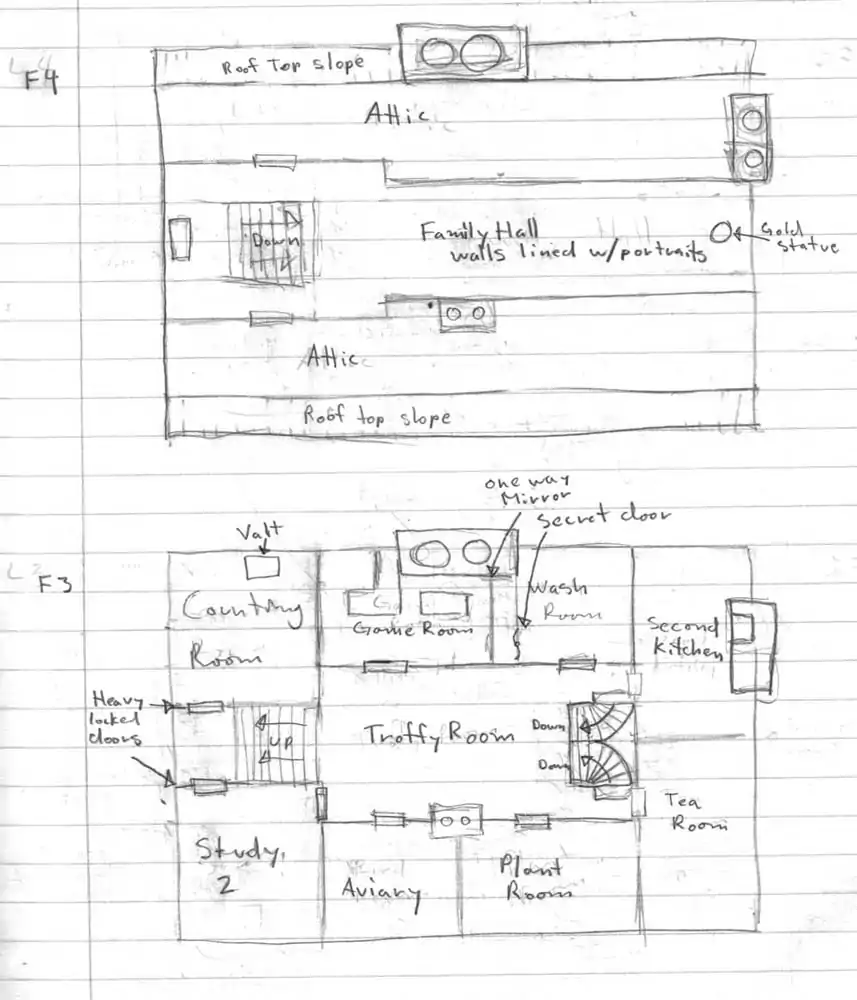 F4
Roof Top slope
Attic
Down
Family Hall
walls lined w/portraits
Gold
statue
Attic
Roof top slope
one way
Mirror
secret door
Valt
F3
Counting
Room
Game Room
Wash
Room
Second
Kitchen
Heavy
locked
doors
UP
Troffy Room
Down
Down
Tea
Room
Study
2
Aviary
Plant
Room